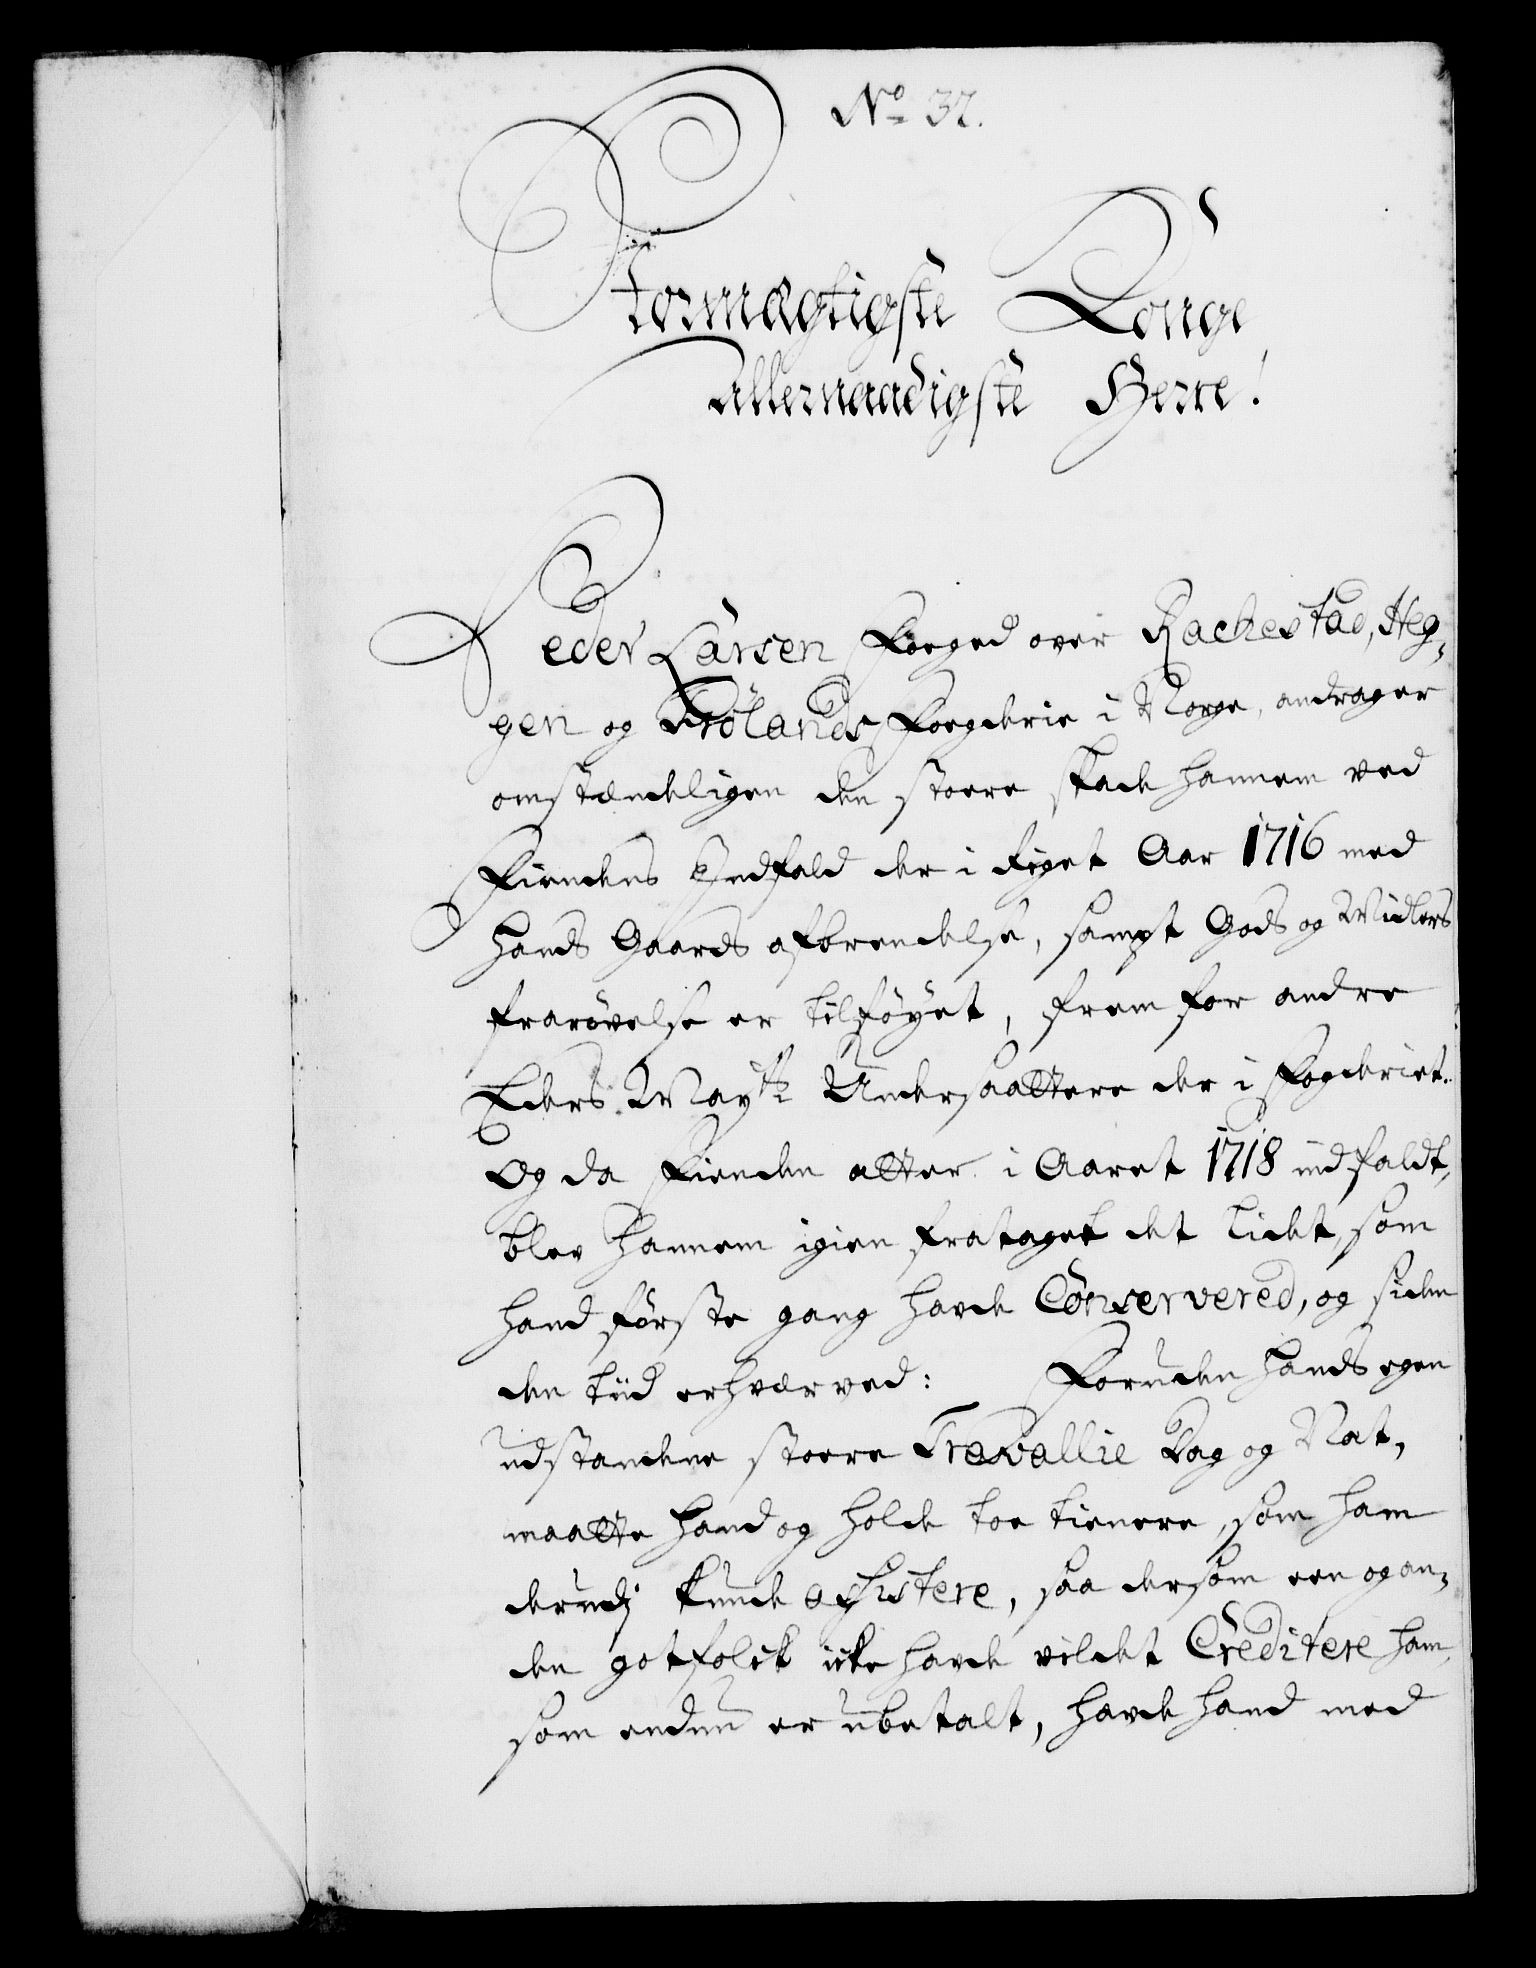 No 37.
Stormægtigste Konge
Allernaadigste Herre!
Peder Larsen Foged over Rachestad, Heg,
gen og Frölands Fogderie i Norge, andrager
omstændeligen den stoere skade hannem ved
Fiendens Indfald der i Riget Aar 1716 med
hands Gaards afbrendelse, sampt Gods og Midlers
frarövelse er tilföyet, frem for andre
Eders Mayts Undersaattere der i Fogderiet.
Og da Fienden atter i Aaret 1718 indfaldt,
blev hannem igien frataget det lidet, som
hand förste gang havde Conservered, og siden
den tiid erhværved: Foruden hands egen
udstandene stoere Travallie Dag og Nat,
maatte hand og holde toe tienere, som ham
derudj kunde assistere, saa dersom een og an,
den got folck icke havde vildet Creditere ham,
som endnu er ubetalt, havde hand med